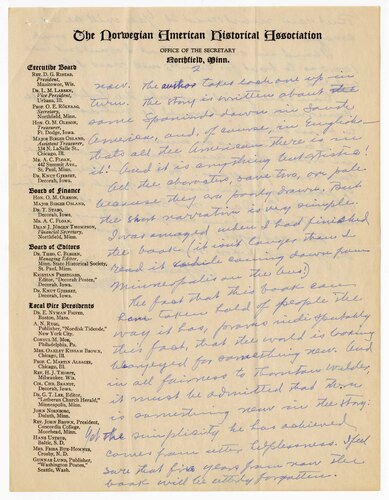 The Norwegian American Historical Association
OFFICE OF THE SECRETARY
Northfield, Minn.
2
Executive Board
REV. D. G. RISTAD,
President,
Manitowoc, Wis.
DR. L. M. LARSEN,
Vice President,
Urbana, Ill.
PROF. O. E. RÖLVAAG,
Secretary,
Northfield, Minn.
HON. O. M. OLESON,
Treasurer,
Ft. Dodge, Iowa.
MAJOR BIRGER OSLAND,
Assistant Treasurer,
134 N. LaSalle St.,
Chicago, Ill.
MR. A. C. FLOAN,
442 Summit Ave.,
St. Paul, Minn.
DR. KNUT GJERSET,
Decorah, Iowa.
Board of Finance
HON. O. M. OLESON,
MAJOR BIRGER OSLAND,
DR. T. STABO,
Decorah, Iowa.
MR. A. C. FLOAN,
DEAN J. JÖRGEN THOMPSON,
Financial Secretary,
Northfield, Minn.
Board of Editors
DR. THEO. C. BLEGEN,
Managing Editor,
Minn. State Historical Society,
St. Paul, Minn.
KRISTIAN PRESTGARD,
Editor, "Decorah Posten,"
Decorah, Iowa.
DR. KNUT GJERSET,
Decorah, Iowa.
Local Vice Presidents
DR. E. NYMAN FIGVED,
Boston, Mass.
A. N. RYGG,
Publisher, "Nordisk Tidende,"
New York City.
CONSUL M. MOE,
Philadelphia, Pa.
MRS. OAKLEY KISSAM BROWN,
Chicago, Ill.
PROF. C. MARTIN ALSAGER,
Chicago, Ill.
REV. H. J. THORPE,
Milwaukee, Wis.
COL. CHR. BRANDT,
Decorah, Iowa.
DR. G. T. LEE, Editor,
"Lutheran Church Herald,"
Minneapolis, Minn.
JOHN NORSBOM,
Duluth, Minn.
REV. JOHN BROWN, President,
Concordia College.
Moorhead, Minn.
HANS USTRUD,
Baltic, S. D.
MRS. FRIDA BUE-HOMNES,
Crosby, N. D.
GUNNAR LUND, Publisher,
"Washington Posten,"
Seattle, Wash.
now. The author takes each one up in
turn. The story is written about the
some Spaniards down in South
America, and, of course, in English —
that's all the American there is in
it! And it is anything but artistic!
All the characters, save two, are pale
because they are poorly drawn. But
the short narration is very simple.
I was amazed when I had finished
the book (it isn't longer than I
read it while coming down from
Minneapolis on the bus!)
The fact that this book can
have taken hold of people the
way it has, proves indisputably
this fact, that the world is looking
for something new. And
in all fairness to Thornton Wilder,
it must be admitted that there
is something new in the story:
Yet the simplicity he has achieved
comes from utter helplessness. I feel
sure that five years from now the
book will be utterly forgotten.